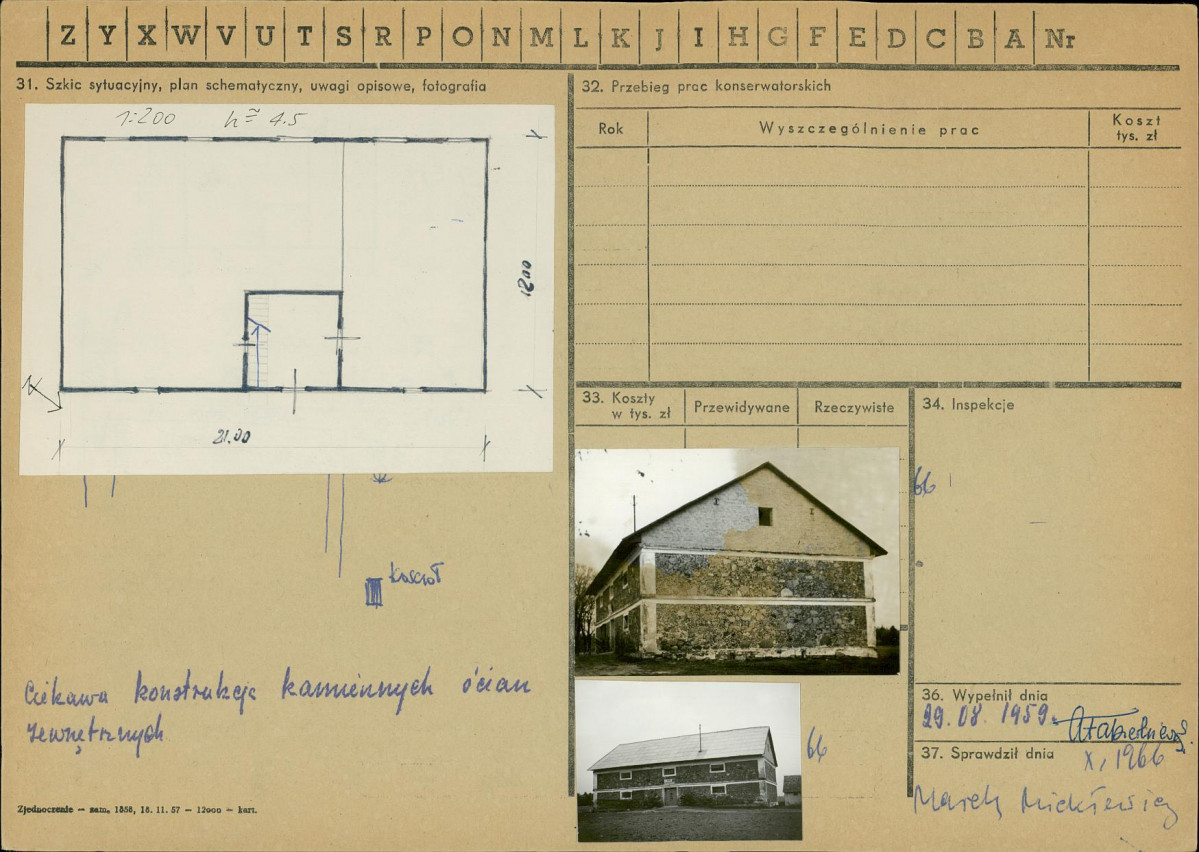 Z Y X W V U T S R P O N M L K J I H G F E D C B A Nr
31. Szkic sytuacyjny, plan schematyczny, uwagi opisowe, fotografia
1:200 h ≅ 4.5
1200
21.00
Kościół
Ciekawa konstrukcja kamiennych ścian
zewnętrznych
Zjednoczenie — zam. 1858, 18. 11. 57 — 12000 — kart.
32. Przebieg prac konserwatorskich
Rok Wyszczególnienie prac Koszt
tys. zł
33. Koszty
w tys. zł Przewidywane Rzeczywiste
66
66
34. Inspekcje
36. Wypełnił dnia
29. 08. 1959.
37. Sprawdził dnia
X, 1966
Marek